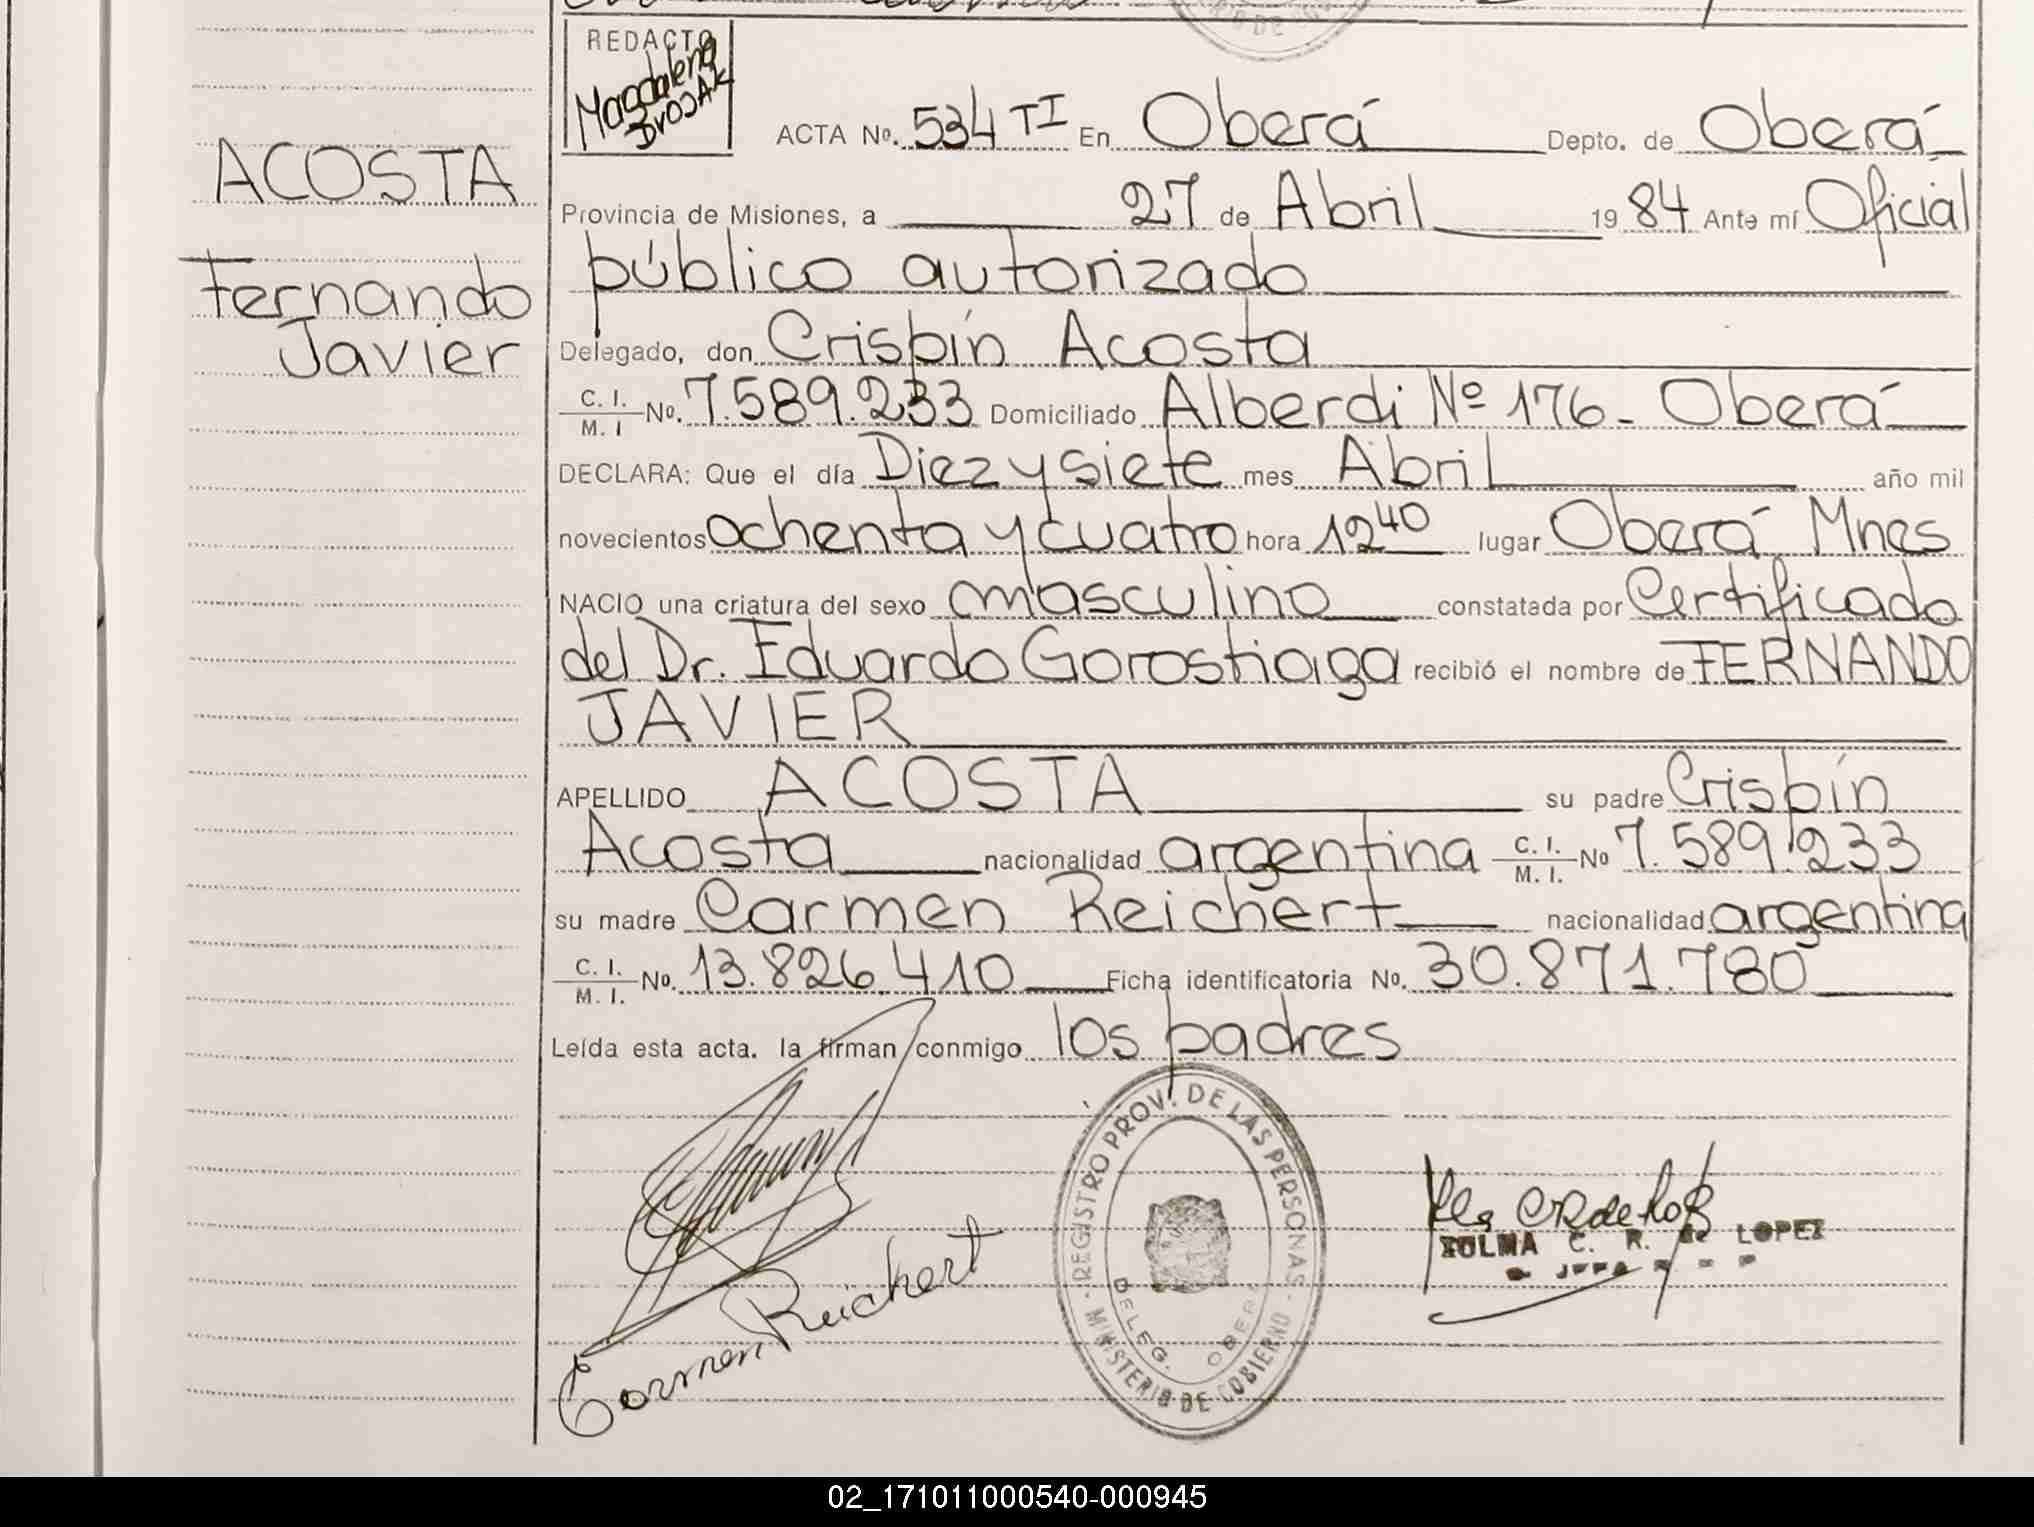 REDACTO
Magdalena
ACTA No. 534 TI En Oberá Depto. de Oberá
ACOSTA
Provincia de Misiones, a 27 de Abril 1984 Ante mí Oficial
público autorizado
Fernando
Javier
Delegado, don Crisbín Acosta
C. I.
M. I No. 7.589.233 Domiciliado Alberdi Nº 176 - Oberá
DECLARA: Que el día Diez y siete mes Abril año mil
novecientos ochenta y cuatro hora 12 40 lugar Oberá Mnes
NACIO una criatura del sexo masculino constatada por Certificado
del Dr. Eduardo Gorostiaga recibió el nombre de FERNANDO
JAVIER
APELLIDO ACOSTA su padre Crisbín
Acosta nacionalidad argentina C. I.
M. I. No 7.589.233
su madre Carmen Reichert nacionalidad argentina
C. I.
M. I. No. 13.826.410 Ficha identificatoria No. 30.871.780
Leída esta acta. la firman conmigo los padres
REGISTRO PROV. DE LAS PERSONAS - MINISTERIO DE GOBIERNO
DELEG. OBERA
ZULMA C. R. de LOPEZ
Carmen Reichert
02_171011000540-000945